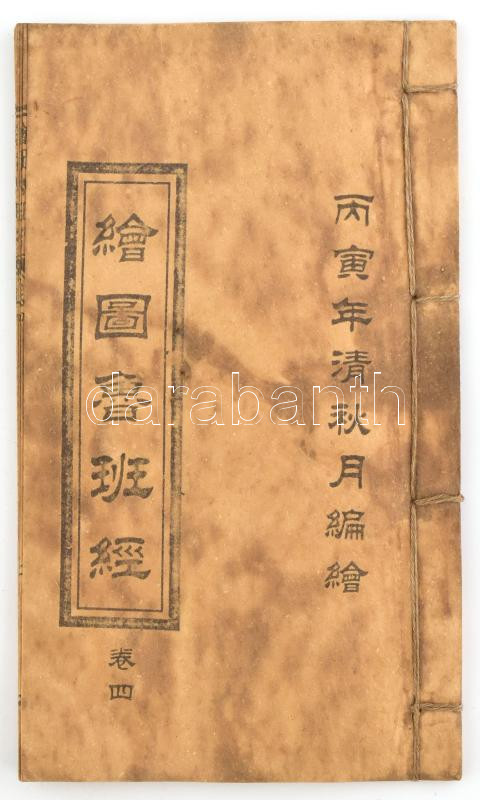 丙寅年清秋月編繪
繪圖魯班經
卷四
darabanth